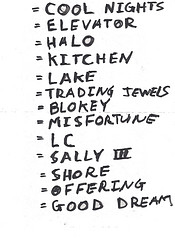 = COOL NIGHTS
= ELEVATOR
= HALO
= KITCHEN
= LAKE
= TRADING JEWELS
= BLOKEY
= MISFORTUNE
= LC
= SALLY III
= SHORE
= OFFERING
= GOOD DREAM